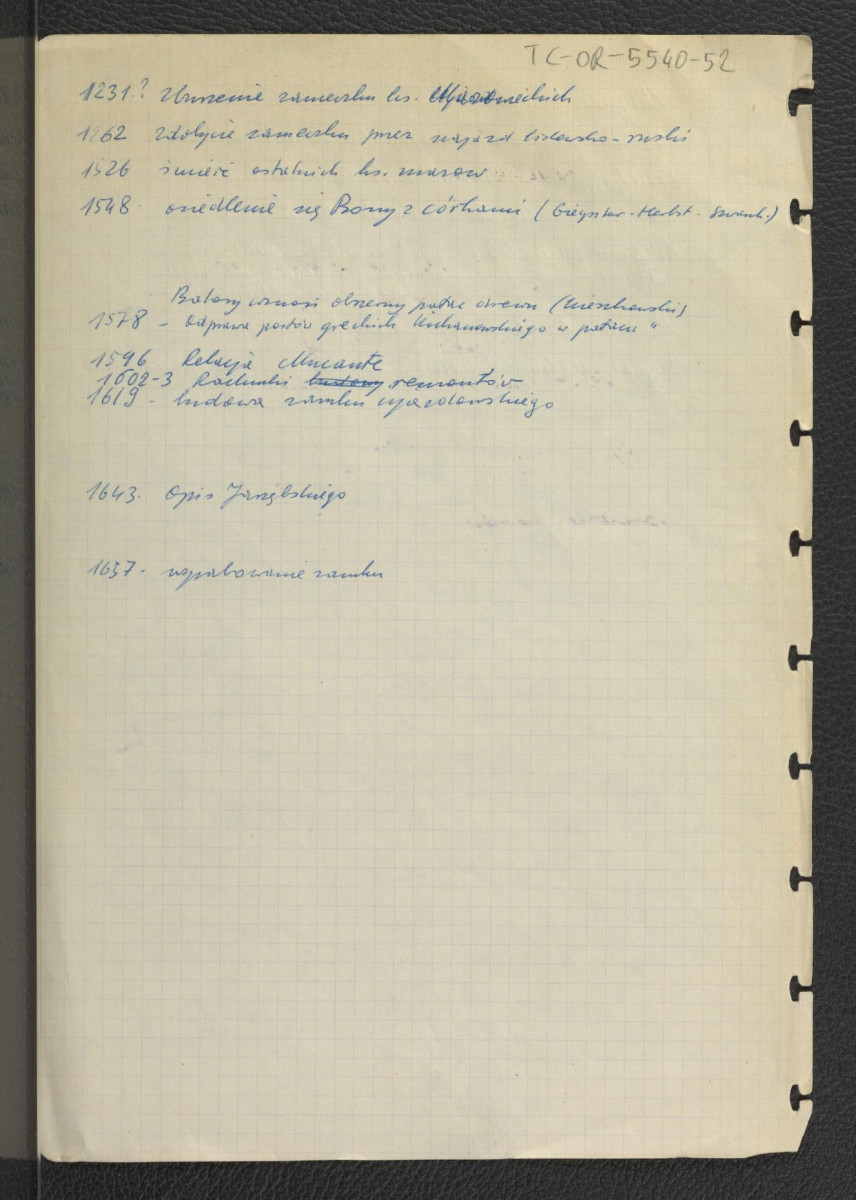 TC-OR-5540-52
1231.? Wzniesienie zameczku ks. Mazowieckich
1262 zdobycie zameczku przez najazd litewsko-ruski
1526. śmierć ostatnich ks. mazow.
1548. osiedlenie się Bony z córkami (Gieysztor. Herbst. Szwank.)
Batory wznosi obszerny pałac drewn (Mieszkowski)
1578 - Odprawa posłów greckich Kochanowskiego w pałacu"
1596. Relacja Mucante
1602-3 Rachunki budowy remontów
1619 - budowa zamku ujazdowskiego
1643. Opis Jarzębskiego
1657. wyrabowanie zamku